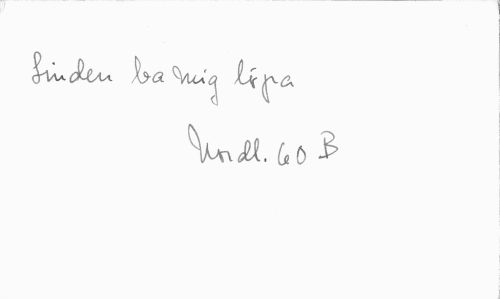 Linden ba mig löpa
Nordl. 60 B